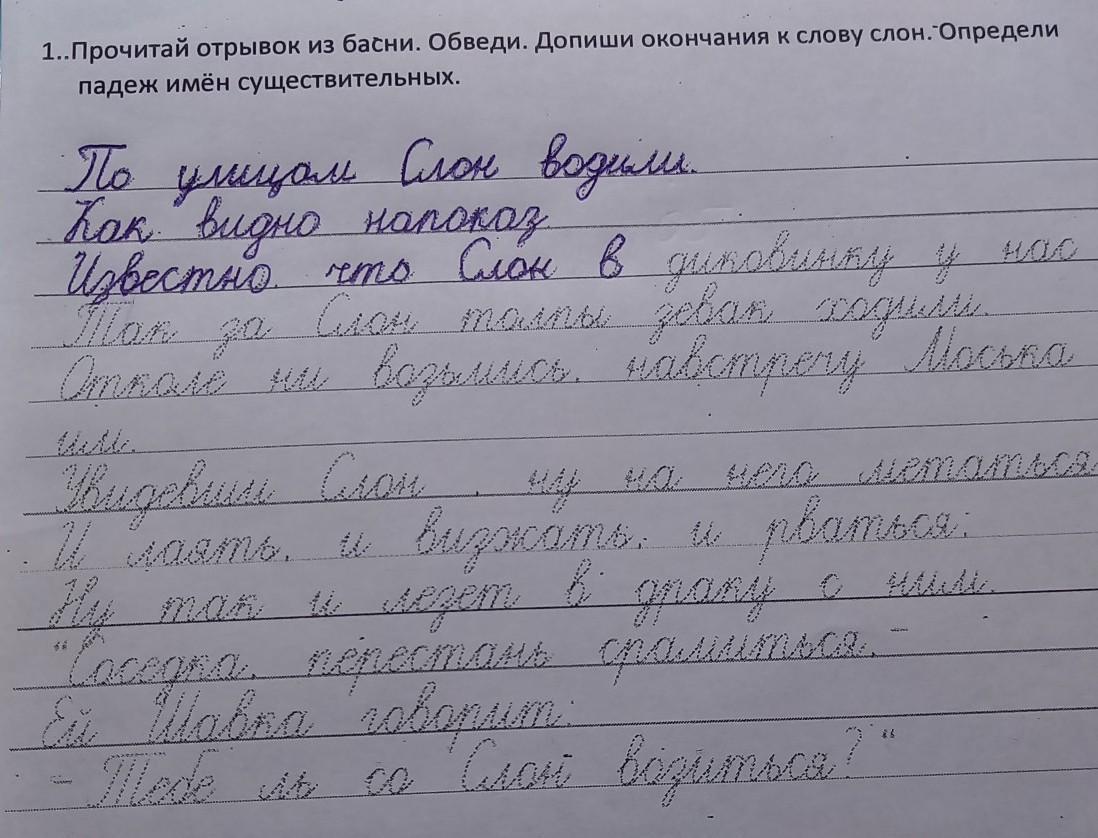 1..Прочитай отрывок из басни. Обведи. Допиши окончания к слову слон. Определи
падеж имён существительных.
По улицам Слон водили.
Как видно напоказ
Известно что Слон в диковинку у нас
Так за Слон толпы зевак ходили.
Отколе ни возьмись, навстречу Моська
им.
Увидевши Слон , ну на него метаться
И лаять, и визжать, и рваться;
Ну так и лезет в драку с ним.
“Соседка, перестань срамиться,-
Ей Шавка говорит:
- Тебе ль со Слон возиться?“